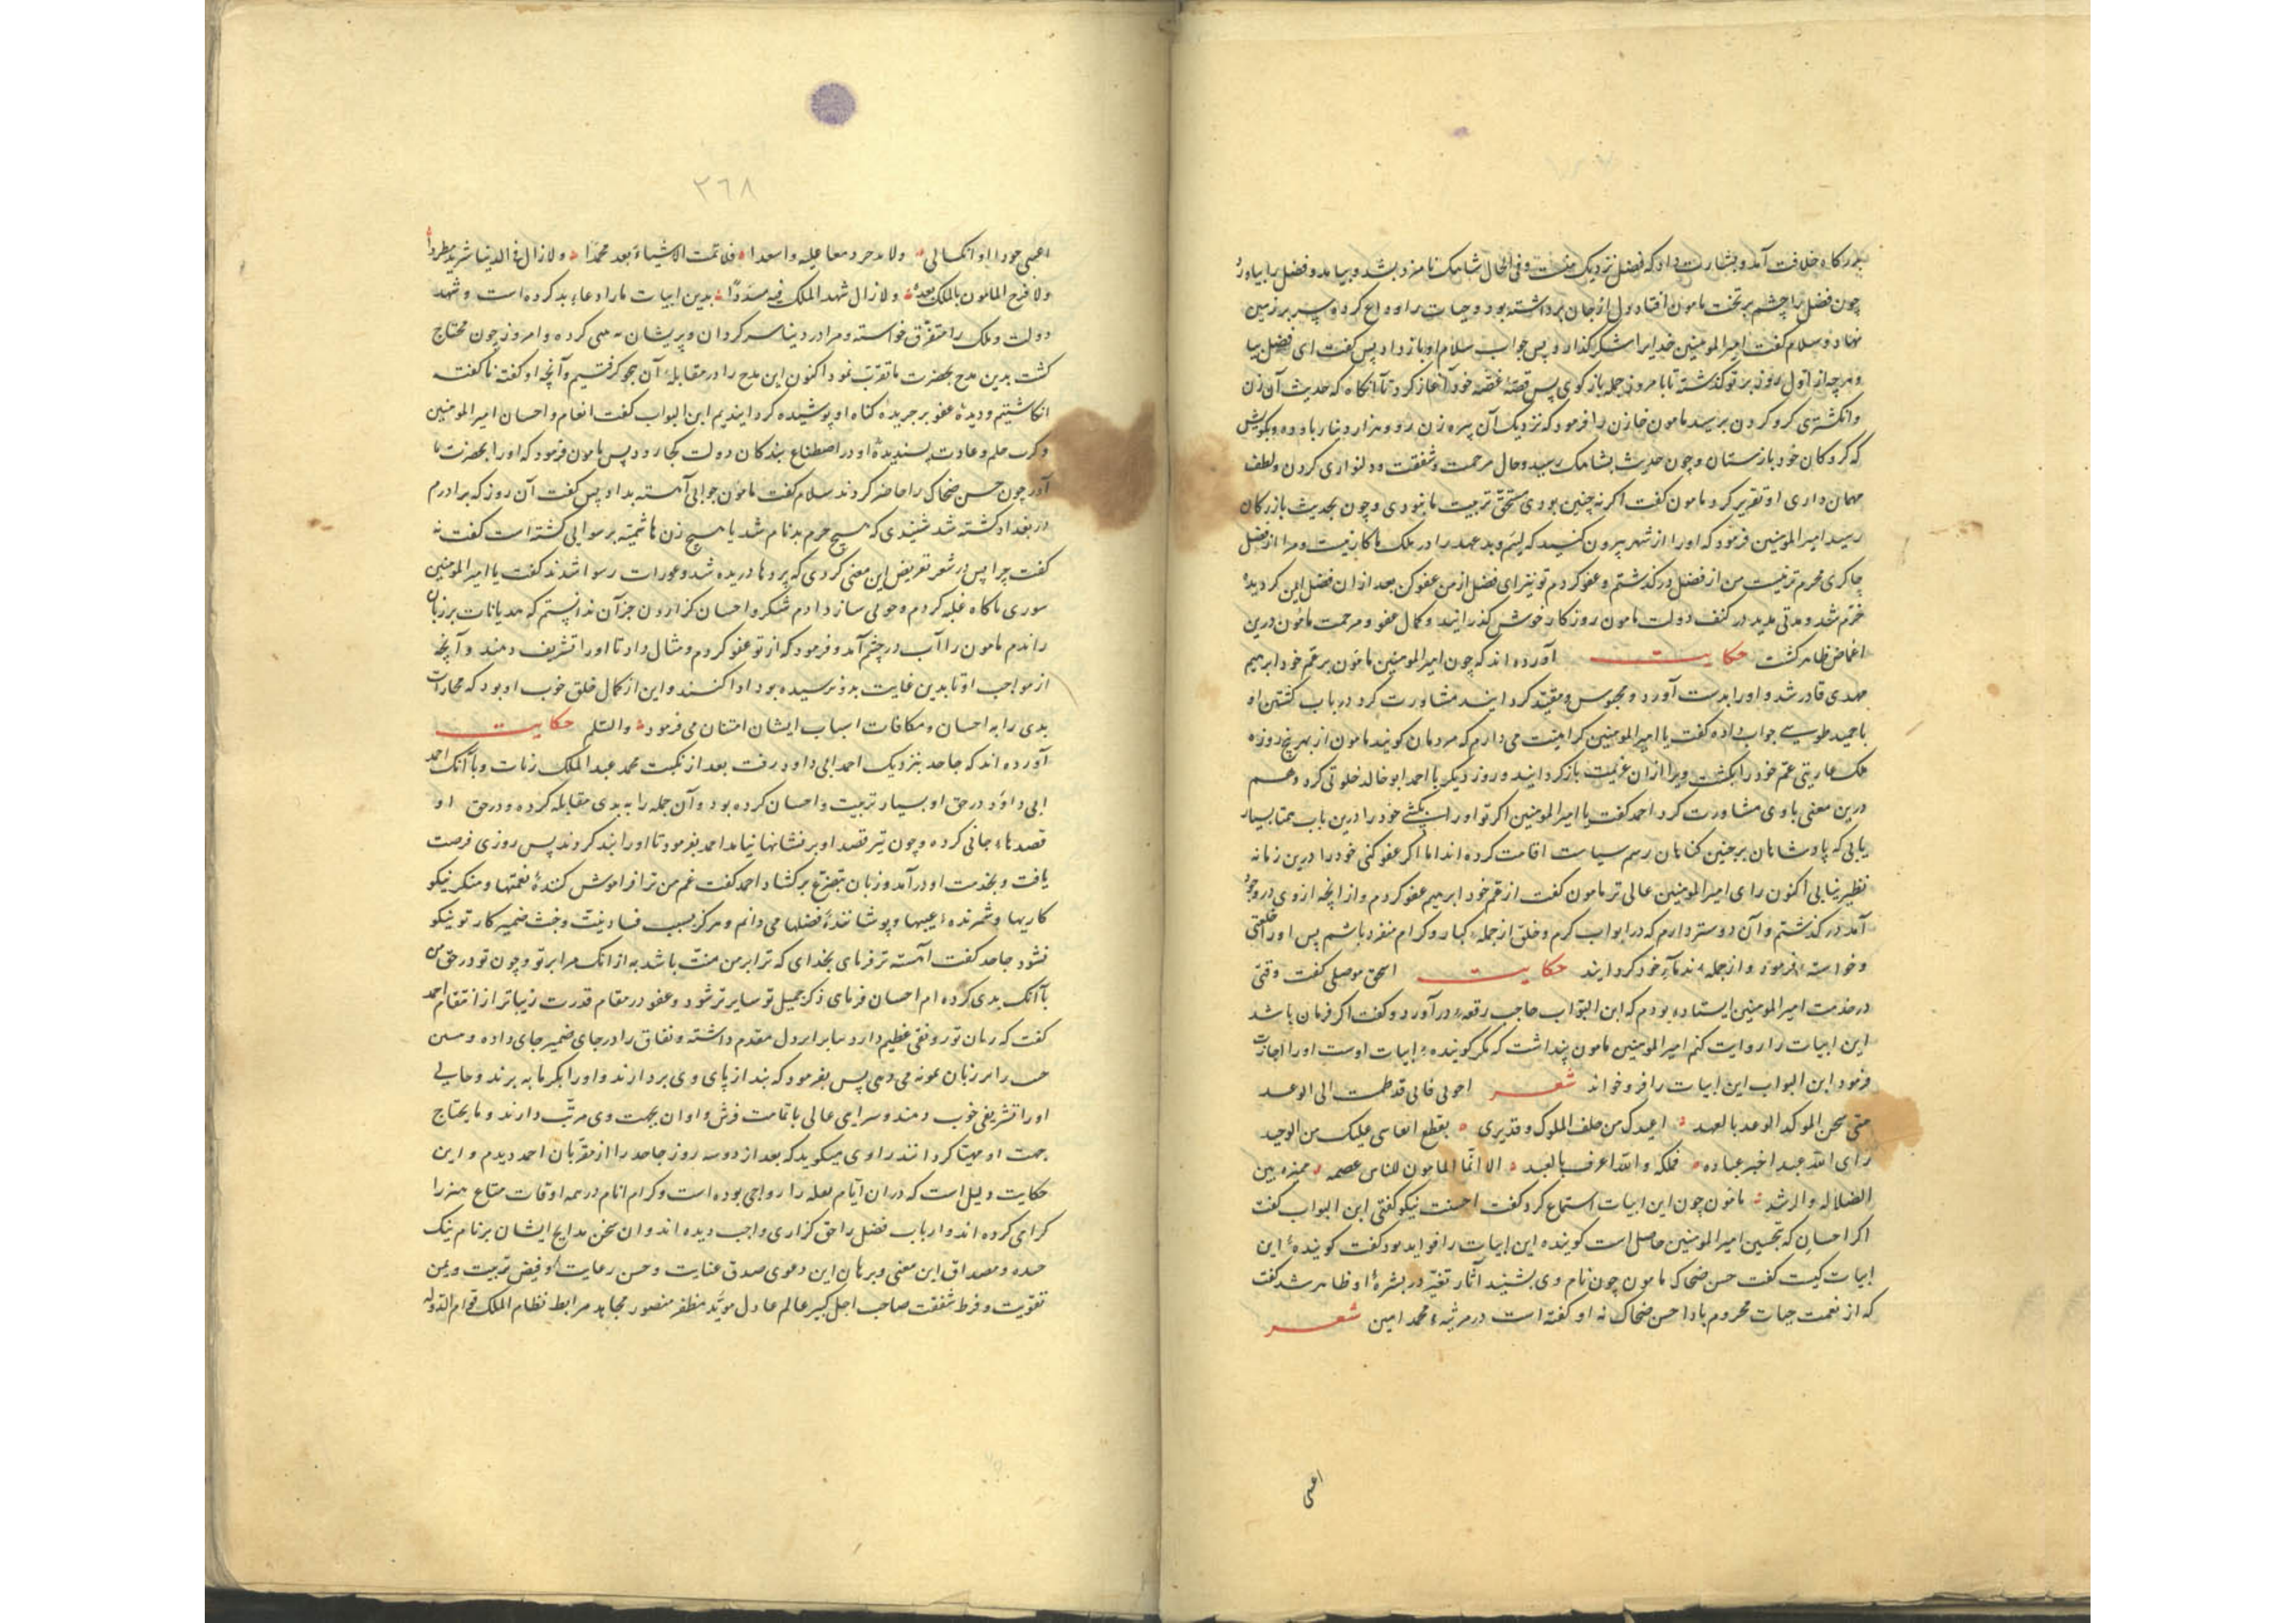 بدرگاه خلافت آمد و بشارت داد که فضل نزدیک منست و فی الحال شاهک نامزد بشد و بیامد و فضل را بیاورد
چون فضل را چشم بر تخت مامون افتاد دل از جان برداشته بود و حیات را وداع کرده سر بر زمین
نهاد و سلام گفت امیرالمومنین خدایرا شکر گذارد پس جواب سلام او باز داد پس گفت ای فضل بیا
و هرچه از اول روز بر تو گذشته تا بامروز جمله بازگوی پس قصهٔ غصه خود آغاز کرد تا آنگاه که حدیث آن زن
و انگشتری گرو کردن برسید مامون خازن را فرمود که نزدیک آن پیره زن رو و هزار دینار باو ده و بگویش
که گروگان خود بازستان و چون حدیث بشاهک رسید و حال مرحمت و شفقت و دلنواری کردن و لطف
مهمان داری او تقریر کرد مامون گفت اگر نه چنین بودی مستحق تربیت ما نبودی و چون بحدیث بازرگان
رسید امیرالمومنین فرمود که اورا از شهر بیرون کنید که لئیم و بدعهد را در ملک ما کار نیست و مرا از فضل
چاکری محرم تر نیست من از فضل در گذشتم و عفو کردم تو نیز ای فضل از من عفو کن بعد ازان فضل ایمن گردید
خرّم شد و مدتی مدید در کنف دولت مامون روزگار خوش گذرانید و کمال عفو و مرحمت مامون درین
اغماض ظاهر گشت حکایت آورده اند که چون امیرالمومنین مامون بر عم خود ابرهیم
مهدی قادر شد و اورا بدست آورد و محبوس و مقیّد گردانید مشاورت کرد در باب کشتن او
با حمید طوسی جواب داده گفت یا امیرالمومنین کراهیت می دارم که مردمان گویند مامون از بهر پنج روزه
ملک عاریتی عم خود را بکشت ویرا ازان عزیمت بازگردانید و روز دیگر با احمد ابو خالد خلوتی کرد و هم
درین معنی باوی مشاورت کرد احمد گفت یا امیرالمومنین اگر تو اورا بکشی خود را درین باب همتا بسیار
یابی که پادشاهان بر چنین گناهان رسم سیاست اقامت کرده اند اما اگر عفو کنی خود را درین زمانه
نظیر نیابی اکنون رای امیرالمومنین عالی تر مامون گفت از عم خود ابرهیم عفو کردم و از آنچه از وی در وجود
آمد در گذشتم و آن دوستر دارم که در ابواب کرم و خلق از جمله کبار و کرام منفرد باشم پس اورا خلعتی
و خواسته فرمود و از جمله ندماء خود گردانید حکایت اسحق موصلی گفت وقتی
در خدمت امیرالمومنین ایستاده بودم که ابن البوّاب حاجب رقعه در آورد و گفت اگر فرمان باشد
این ابیات را روایت کنم امیرالمومنین مامون پنداشت که مگر گوینده ابیات اوست اورا اجازت
فرمود ابن البواب این ابیات را فرو خواند شعر
الوعد بالعهد اعیذک من خلف الملوک
رای الله عبد الله خیر عباده فملکه والله اعرف بالعبد الا انّما المامون للناس عصمه ممیزه بین
الضلاله والرشد مامون چون این ابیات استماع کرد گفت احسنت نیکو گفتی ابن البواب گفت
اگر احسان که تحسین امیرالمومنین حاصل است گوینده این ابیات را فرمود گفت گویندهٔ این
ابیات کیست گفت حسن ضحاک مامون چون نام وی بشنید آثار تغیّر در بشرهٔ او ظاهر شد گفت
که از نعمت حیات محروم بادا حسن ضحاک نه او گفته است در مرثیه محمد امین شعر
اعینی
٢٦٨
فلا تمت الاشیاء بعد محمدا ولا زال فی الدنیا شریدا مطردا
ولا فرح المامون بالملک بعده ولا زال بدین ابیات مارا دعاء بد کرده است و شهد
دولت و ملک را متفرّق خواسته و مرا در دنیا سرگردان و پریشان کرده و امروز چون محتاج
گشت بدین مدح بحضرت ما تقرّب نمود اکنون این مدح را در مقابلهٔ آن هجو گرفتیم و آنچه او گفته ناگفته
انگاشتیم و دیدهٔ عفو بر جریدهٔ گناه او پوشیده گردانیدیم ابن البواب گفت انعام و احسان امیرالمومنین
و کرم و حلم و عادت پسندیدهٔ او در اصطناع بندگان دولت کجا رود پس مامون فرمود که اورا بحضرت ما
آور چون حسن ضحاک را حاضر کردند سلام گفت مامون جوابی آهسته بداد پس گفت آن روز که برادرم
در بغداد کشته شد شنیدی که هیچ حرم بدنام شد یا هیچ زن هاشمیّه برسوایی گشته است گفت نه
گفت چرا پس در شعر تعریض این معنی کردی که پردها دریده شد و عورات رسوا شدند گفت یا امیرالمومنین
راندم مامون را آب در چشم آمد و فرمود که از تو عفو کردم و مثال داد تا اورا تشریف دهند و آنچه
از مواجب او تا بدین غایت بدو نرسیده بود ادا کنند و این از کمال خلق خوب او بود که مجازات
بدی را به احسان و مکافات اسباب ایشان امتنان می فرمود والسلم حکایت
آورده اند که جاحد بنزدیک احمد ابی داود رفت بعد از نکبت محمد عبد الملک زیات و با آنک احمد
ابی داود در حق او بسیار تربیت و احسان کرده بود و آن جمله را به بدی مقابله کرده و در حق او
قصدهاء جانی کرده و چون تیر قصد او بر نشانها نیامد احمد بفرمود تا اورا بند کردند پس روزی فرصت
یافت و بخدمت او درآمد و زبان بتضرّع برگشاد احمد گفت من ترا فراموش کنندهٔ نعمتها و منکر نیکو
کاریها و شمرنده عیبها و پوشانندهٔ فضلها می دانم و هرگز بسبب فساد نیّت و خبث ضمیر کار تو نیکو
نشود جاحد گفت آهسته تر فرمای بخدای که ترا بر من منّت باشد به از آنک مرا بر تو و چون تو در حق من
با آنک بدی کرده ام احسان فرمای ذکر جمیل تو سایر تر شود و عفو در مقام قدرت زیباتر از انتقام احمد
گفت که زبان تو رونقی عظیم دارد مقدم داشته و نفاق را در جای ضمیر جای داده
می دهی پس بفرمود که بند از پای وی بردارند و اورا بگرمابه برند و جایی
اورا تشریفی خوب دهند و سرای عالی با تمامت فرش و اوان بجهت وی مرتّب دارند و مایحتاج
جهت او مهیّا گردانند راوی میگوید که بعد از دو سه روز جاحد را از مقرّبان احمد دیدم و این
حکایت دلیل است که دران ایّام را رواجی بوده است و کرام انام در همه اوقات متاع هنر را
گرامی کرده اند و ارباب فضل را حق گزاری واجب دیده اند و ان سخن مدایح ایشان بر نام نیک
و مصداق این معنی و برهان این دعوی صدق عنایت و حسن رعایت و فیض تربیت و یمن
تقویت و فرط شفقت صاحب اجل کبیر عالم عادل مویّد مظفر منصور مجاهد مرابط نظام الملک قوام الدوله